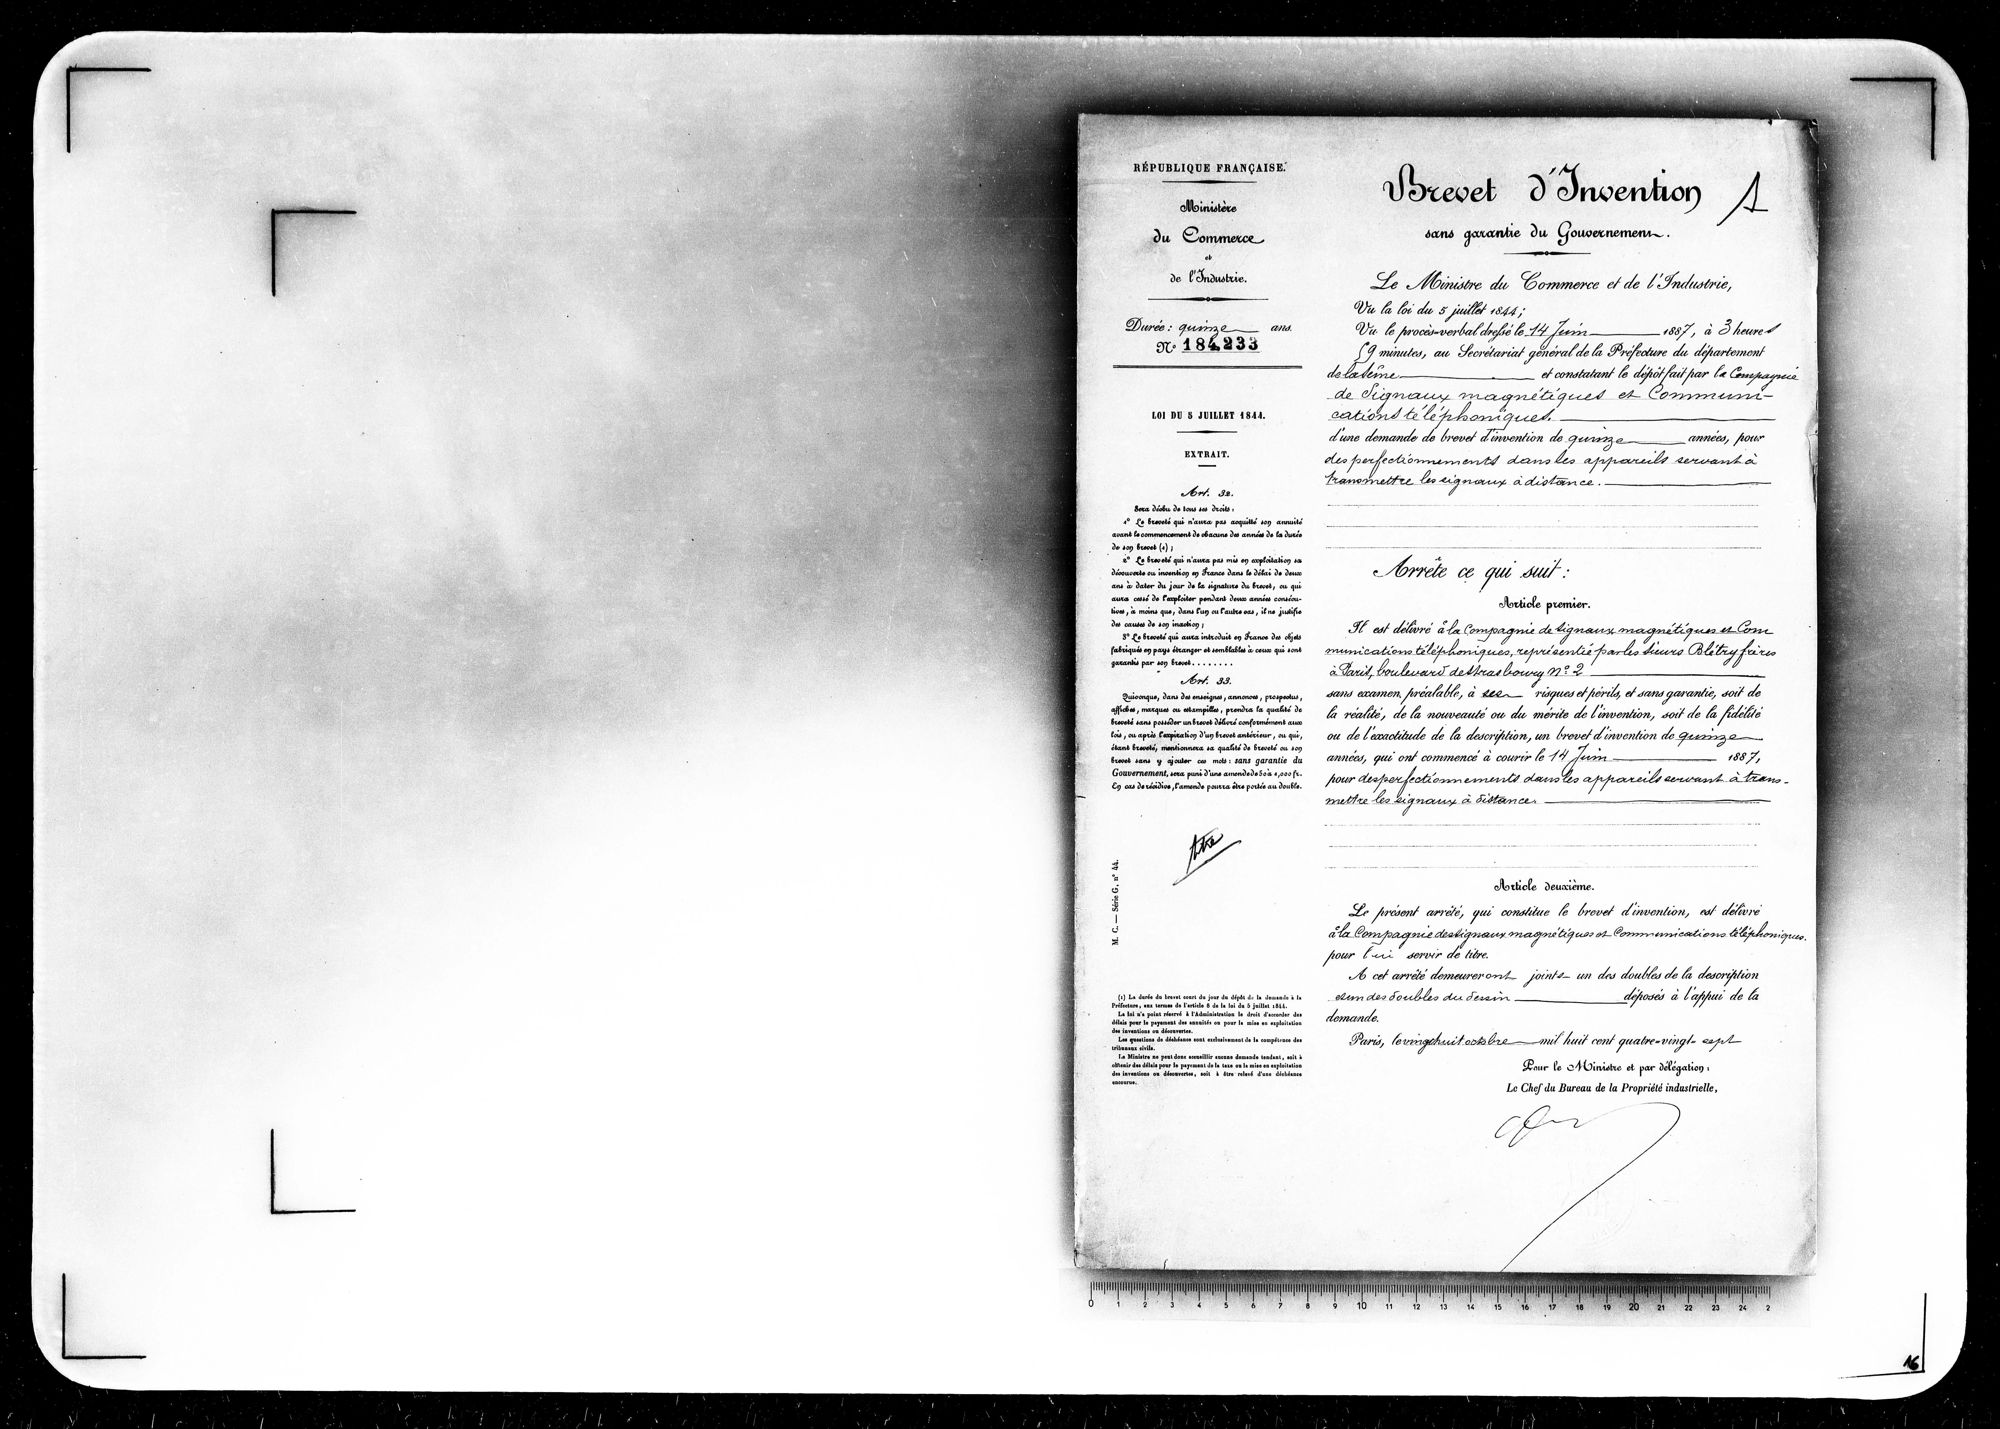 RÉPUBLIQUE FRANÇAISE.
Ministère
du Commerce
et
de l'Industrie.
Durée : quinze ans.
N° 184,233
LOI DU 5 JUILLET 1844.
EXTRAIT.
Art. 32.
Sera déchu de tous ses droits :
1° Le breveté qui n'aura pas acquitté son annuité
avant le commencement de chacune des années de la durée
de son brevet (1) ;
2° Le breveté qui n'aura pas mis en exploitation sa
découverte ou invention en France dans le délai de deux
ans à dater du jour de la signature du brevet, ou qui
aura cessé de l'exploiter pendant deux années consécu-
tives, à moins que, dans l'un ou l'autre cas, il ne justifie
des causes de son inaction ;
3° Le breveté qui aura introduit en France des objets
fabriqués en pays étranger et semblables à ceux qui sont
garantis par son brevet........
Art. 33.
Quiconque, dans des enseignes, annonces, prospectus,
affiches, marques ou estampilles, prendra la qualité de
breveté sans posséder un brevet délivré conformément aux
lois, ou après l'expiration d'un brevet antérieur, ou qui,
étant breveté, mentionnera sa qualité de breveté ou son
brevet sans y ajouter ces mots : sans garantie du
Gouvernement, sera puni d'une amende de 50 à 1,000 fr.
En cas de récidive, l'amende pourra être portée au double.
M. C. — Série G, n° 44.
(1) La durée du brevet court du jour du dépôt de la demande à la
Préfecture, aux termes de l'article 8 de la loi du 5 juillet 1844.
La loi n'a point réservé à l'Administration le droit d'accorder des
délais pour le payement des annuités ou pour la mise en exploitation
des inventions ou découvertes.
Les questions de déchéance sont exclusivement de la compétence des
tribunaux civils.
Le Ministre ne peut donc accueillir aucune demande tendant, soit à
obtenir des délais pour le payement de la taxe ou la mise en exploitation
des inventions ou découvertes, soit à être relevé d'une déchéance
encourue.
Brevet d'Invention
1
sans garantie du Gouvernement.
Le Ministre du Commerce et de l'Industrie,
Vu la loi du 5 juillet 1844;
Vu le procès-verbal dressé le 14 Juin 1887, à 3 heures
59 minutes, au Secrétariat général de la Préfecture du département
de la Seine et constatant le dépôt fait par la Compagnie
de Signaux magnétiques et Communi-
cations téléphoniques.
d'une demande de brevet d'invention de quinze années, pour
des perfectionnements dans les appareils servant à
transmettre les signaux à distance.
Arrête ce qui suit :
Article premier.
Il est délivré à la Compagnie de signaux magnétiques et Com
munications téléphoniques, représentée par les sieurs Blétry frères
à Paris, boulevard de Strasbourg N° 2
sans examen préalable, à ses risques et périls, et sans garantie, soit de
la réalité, de la nouveauté ou du mérite de l'invention, soit de la fidélité
ou de l'exactitude de la description, un brevet d'invention de quinze
années, qui ont commencé à courir le 14 Juin 1887,
pour des perfectionnements dans les appareils servant à trans-
mettre les signaux à distance.
Article deuxième.
Le présent arrêté, qui constitue le brevet d'invention, est délivré
à la Compagnie des signaux magnétiques et Communications téléphoniques.
pour lui servir de titre.
A cet arrêté demeureront joints un des doubles de la description
et un des doubles du dessin déposés à l'appui de la
demande.
Paris, le vingt huit octobre mil huit cent quatre-vingt-sept
Pour le Ministre et par délégation :
Le Chef du Bureau de la Propriété industrielle,
0 1 2 3 4 5 6 7 8 9 10 11 12 13 14 15 16 17 18 19 20 21 22 23 24 2
16